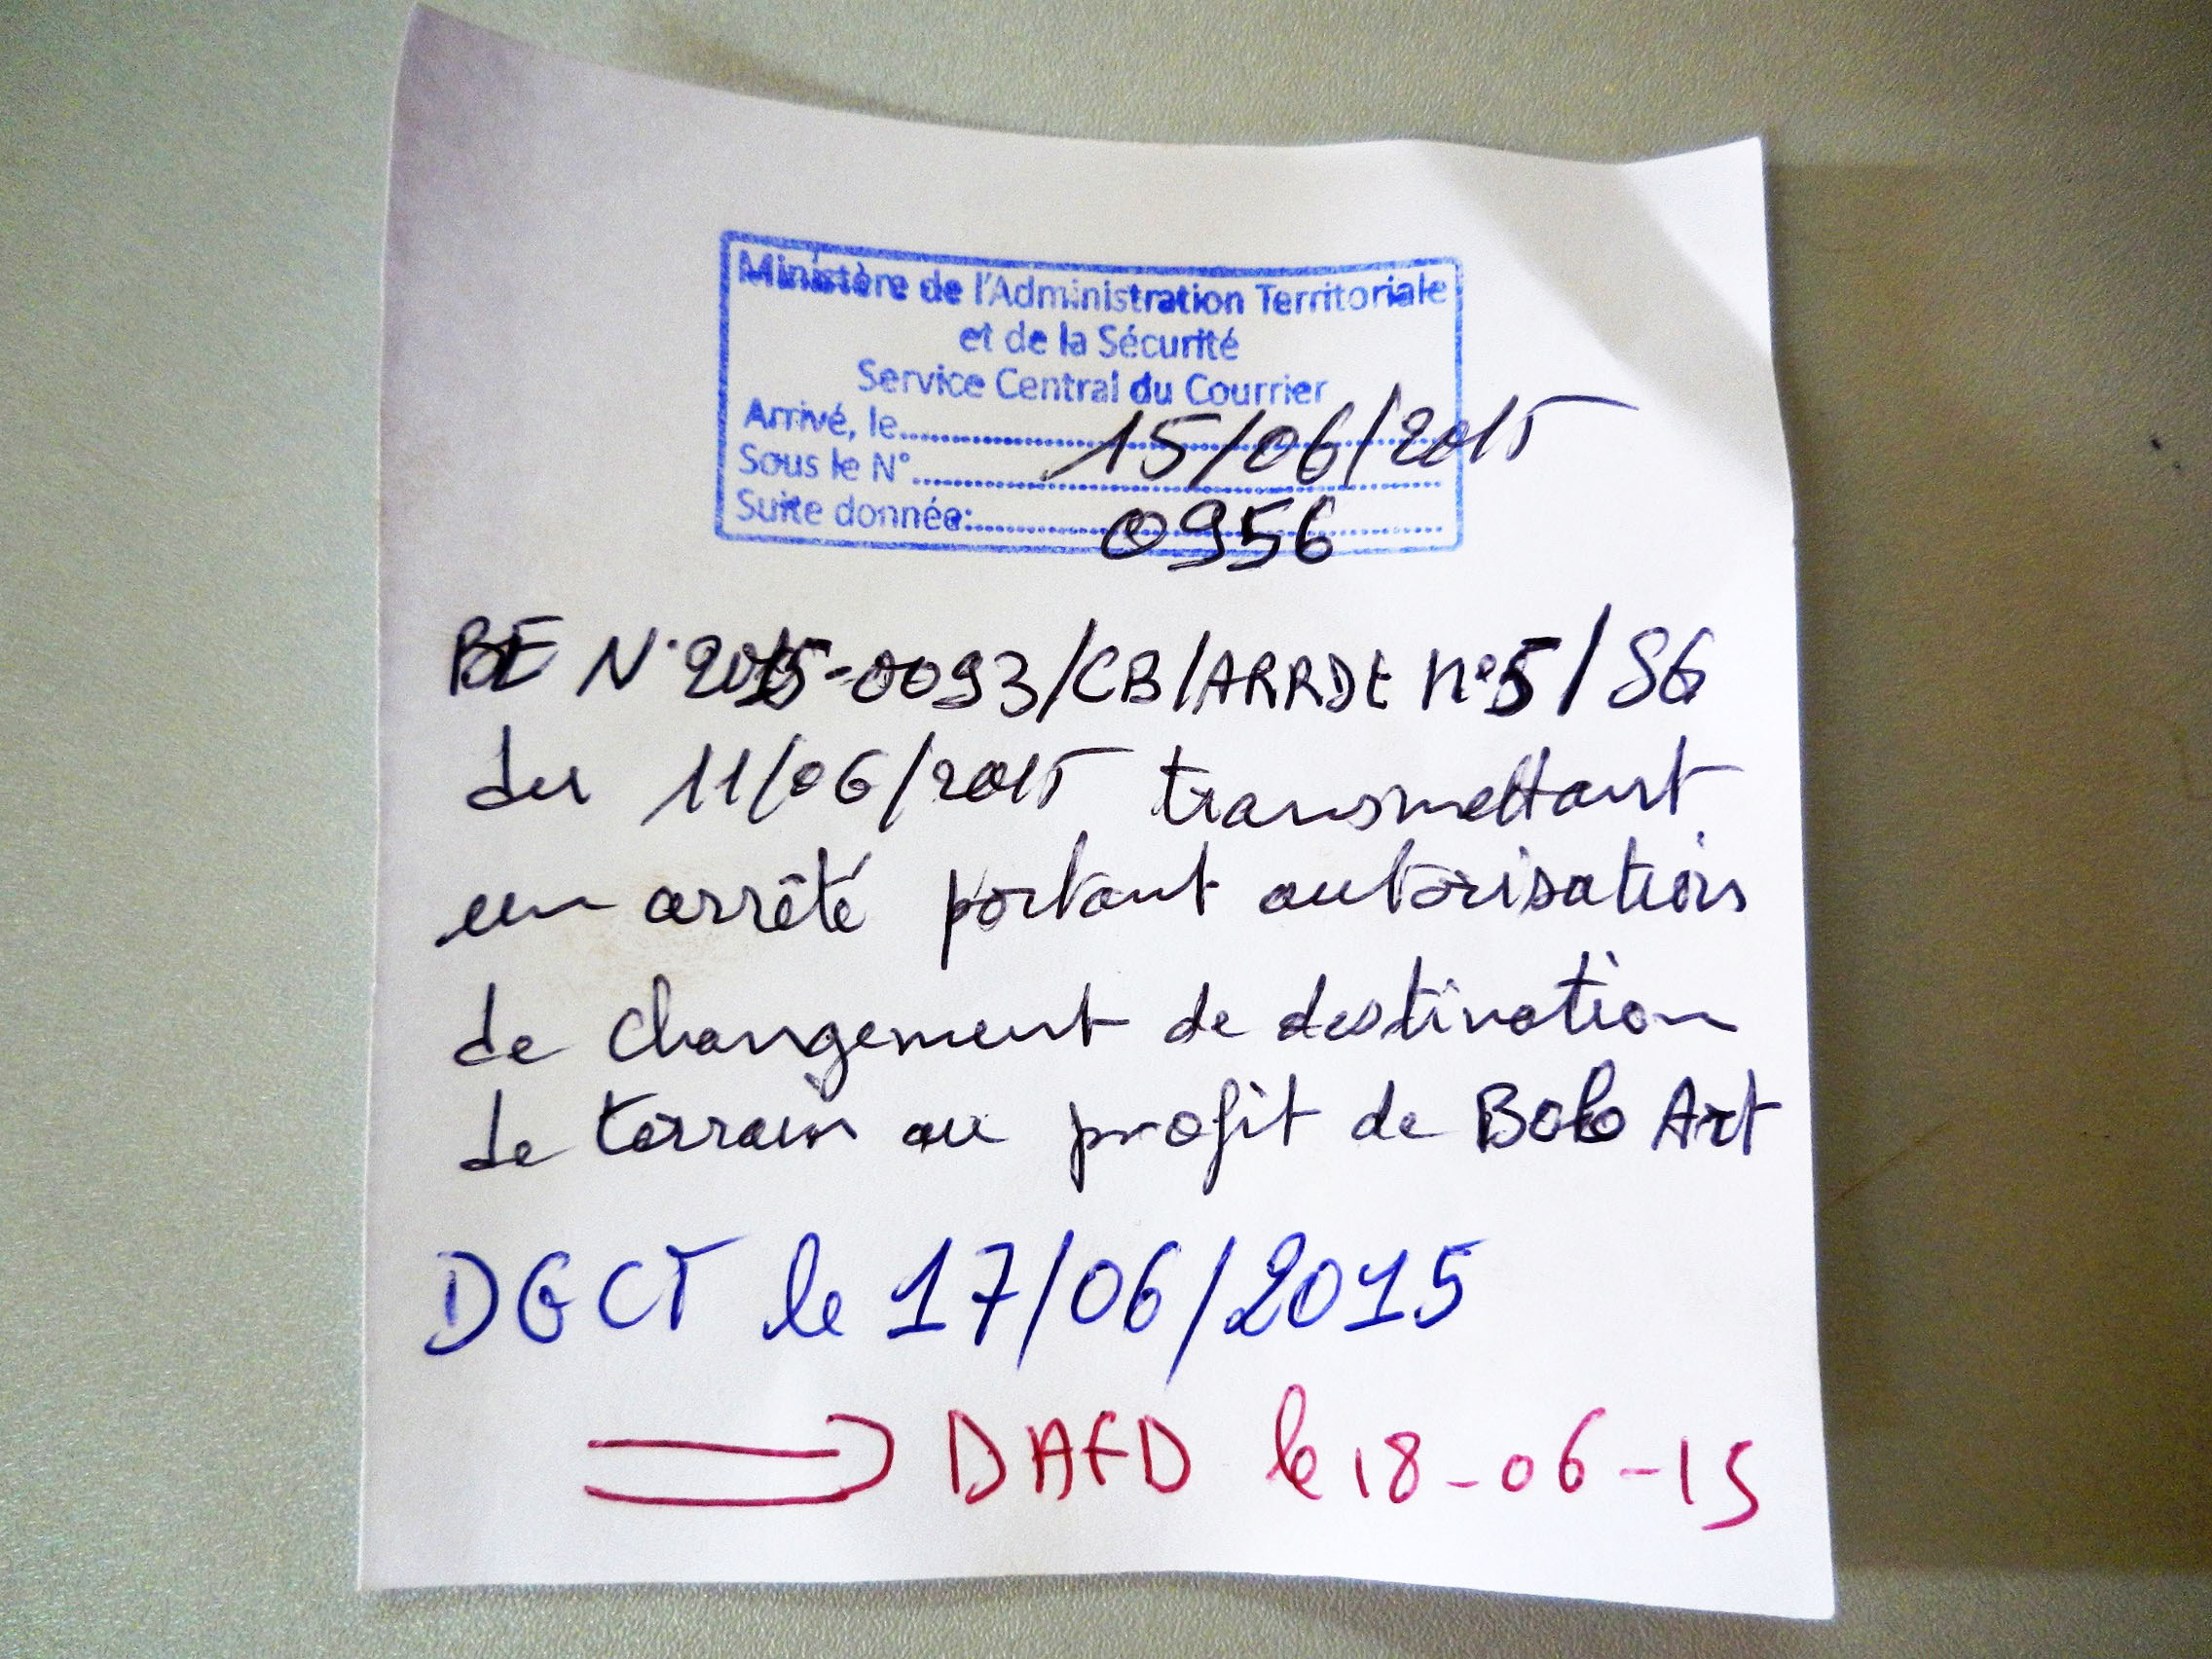 Ministère de l'Administration Territoriale
et de la Sécurité
Service Central du Courrier
Arrivé, le 15/06/2015
Sous le N° 0956
Suite donnée:
BE N° 2015-0093/CB/ARRDt n°5/SG
du 11/06/2015 transmettant
un arrêté portant autorisation
de changement de destination
de terrain au profit de Bobo Art
DGCT le 17/06/2015
⇒ DAFD le 18-06-15